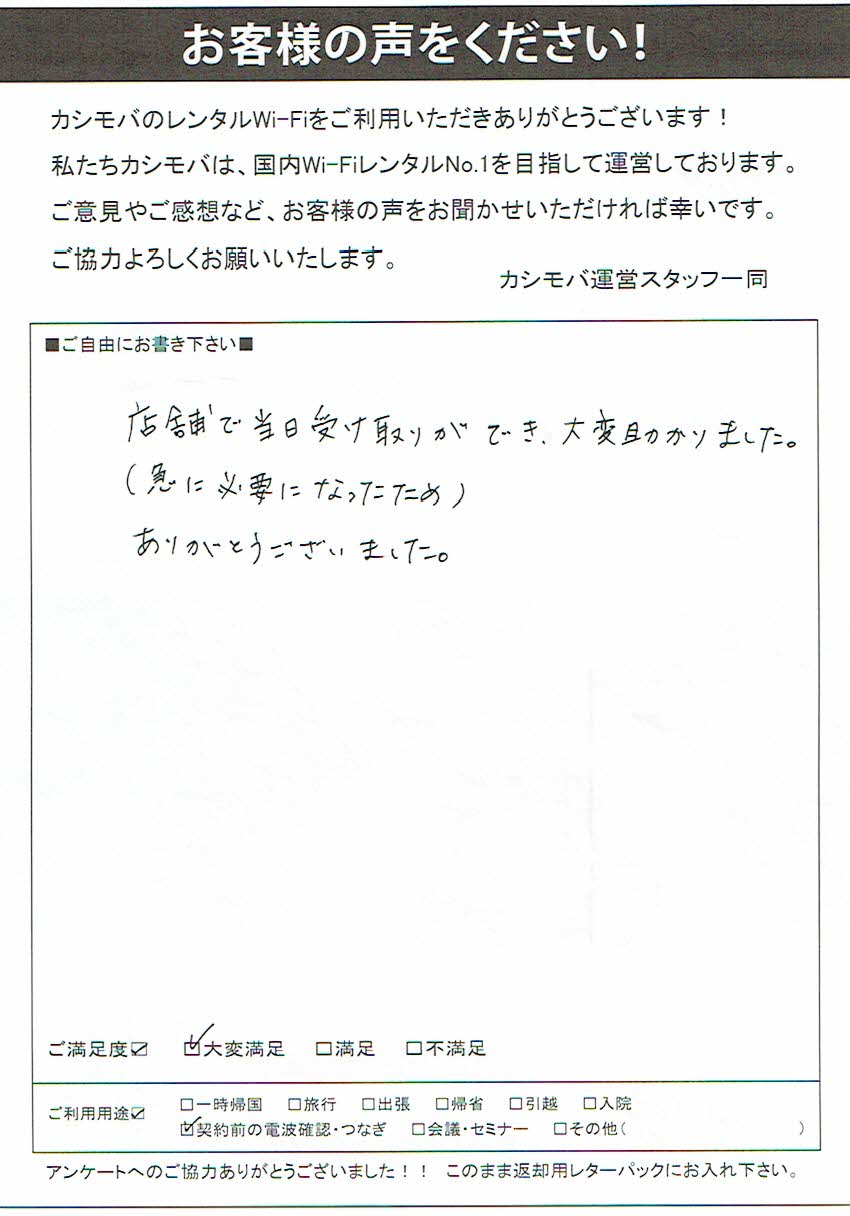 お客様の声をください!
カシモバのレンタルWi-Fiをご利用いただきありがとうございます！
私たちカシモバは、国内Wi-FiレンタルNo.1を目指して運営しております。
ご意見やご感想など、お客様の声をお聞かせいただければ幸いです。
ご協力よろしくお願いいたします。
カシモバ運営スタッフ一同
■ご自由にお書き下さい■
店舗で当日受け取りができ、大変助かりました。
(急に必要になったため)
ありがとうございました。
ご満足度☑ ☑大変満足 □満足 □不満足
ご利用用途☑ □一時帰国 □旅行 □出張 □帰省 □引越 □入院
☑契約前の電波確認・つなぎ □会議・セミナー □その他( )
アンケートへのご協力ありがとうございました！！ このまま返却用レターパックにお入れ下さい。